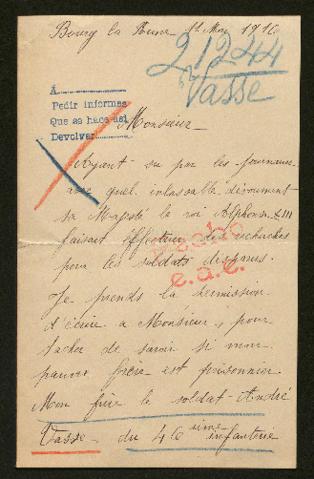 Bourg la Reine 1r Mai 1916
21244
Vasse
A
Pedir informes
Que se hace así
Devolver
Monsieur
Ayant su par les journaux
avec quel inlassable dévouement
sa Majesté le roi Alphonse XIII
faisait effectuer des recherches
pour les soldats disparus.
Hecho
e.a.c.
Je prends la permission
d'écrire a Monsieur, pour
tacher de savoir si mon
pauvre frère est prisonnier.
Mon frère le soldat André
Vasse du 46 ième infanterie